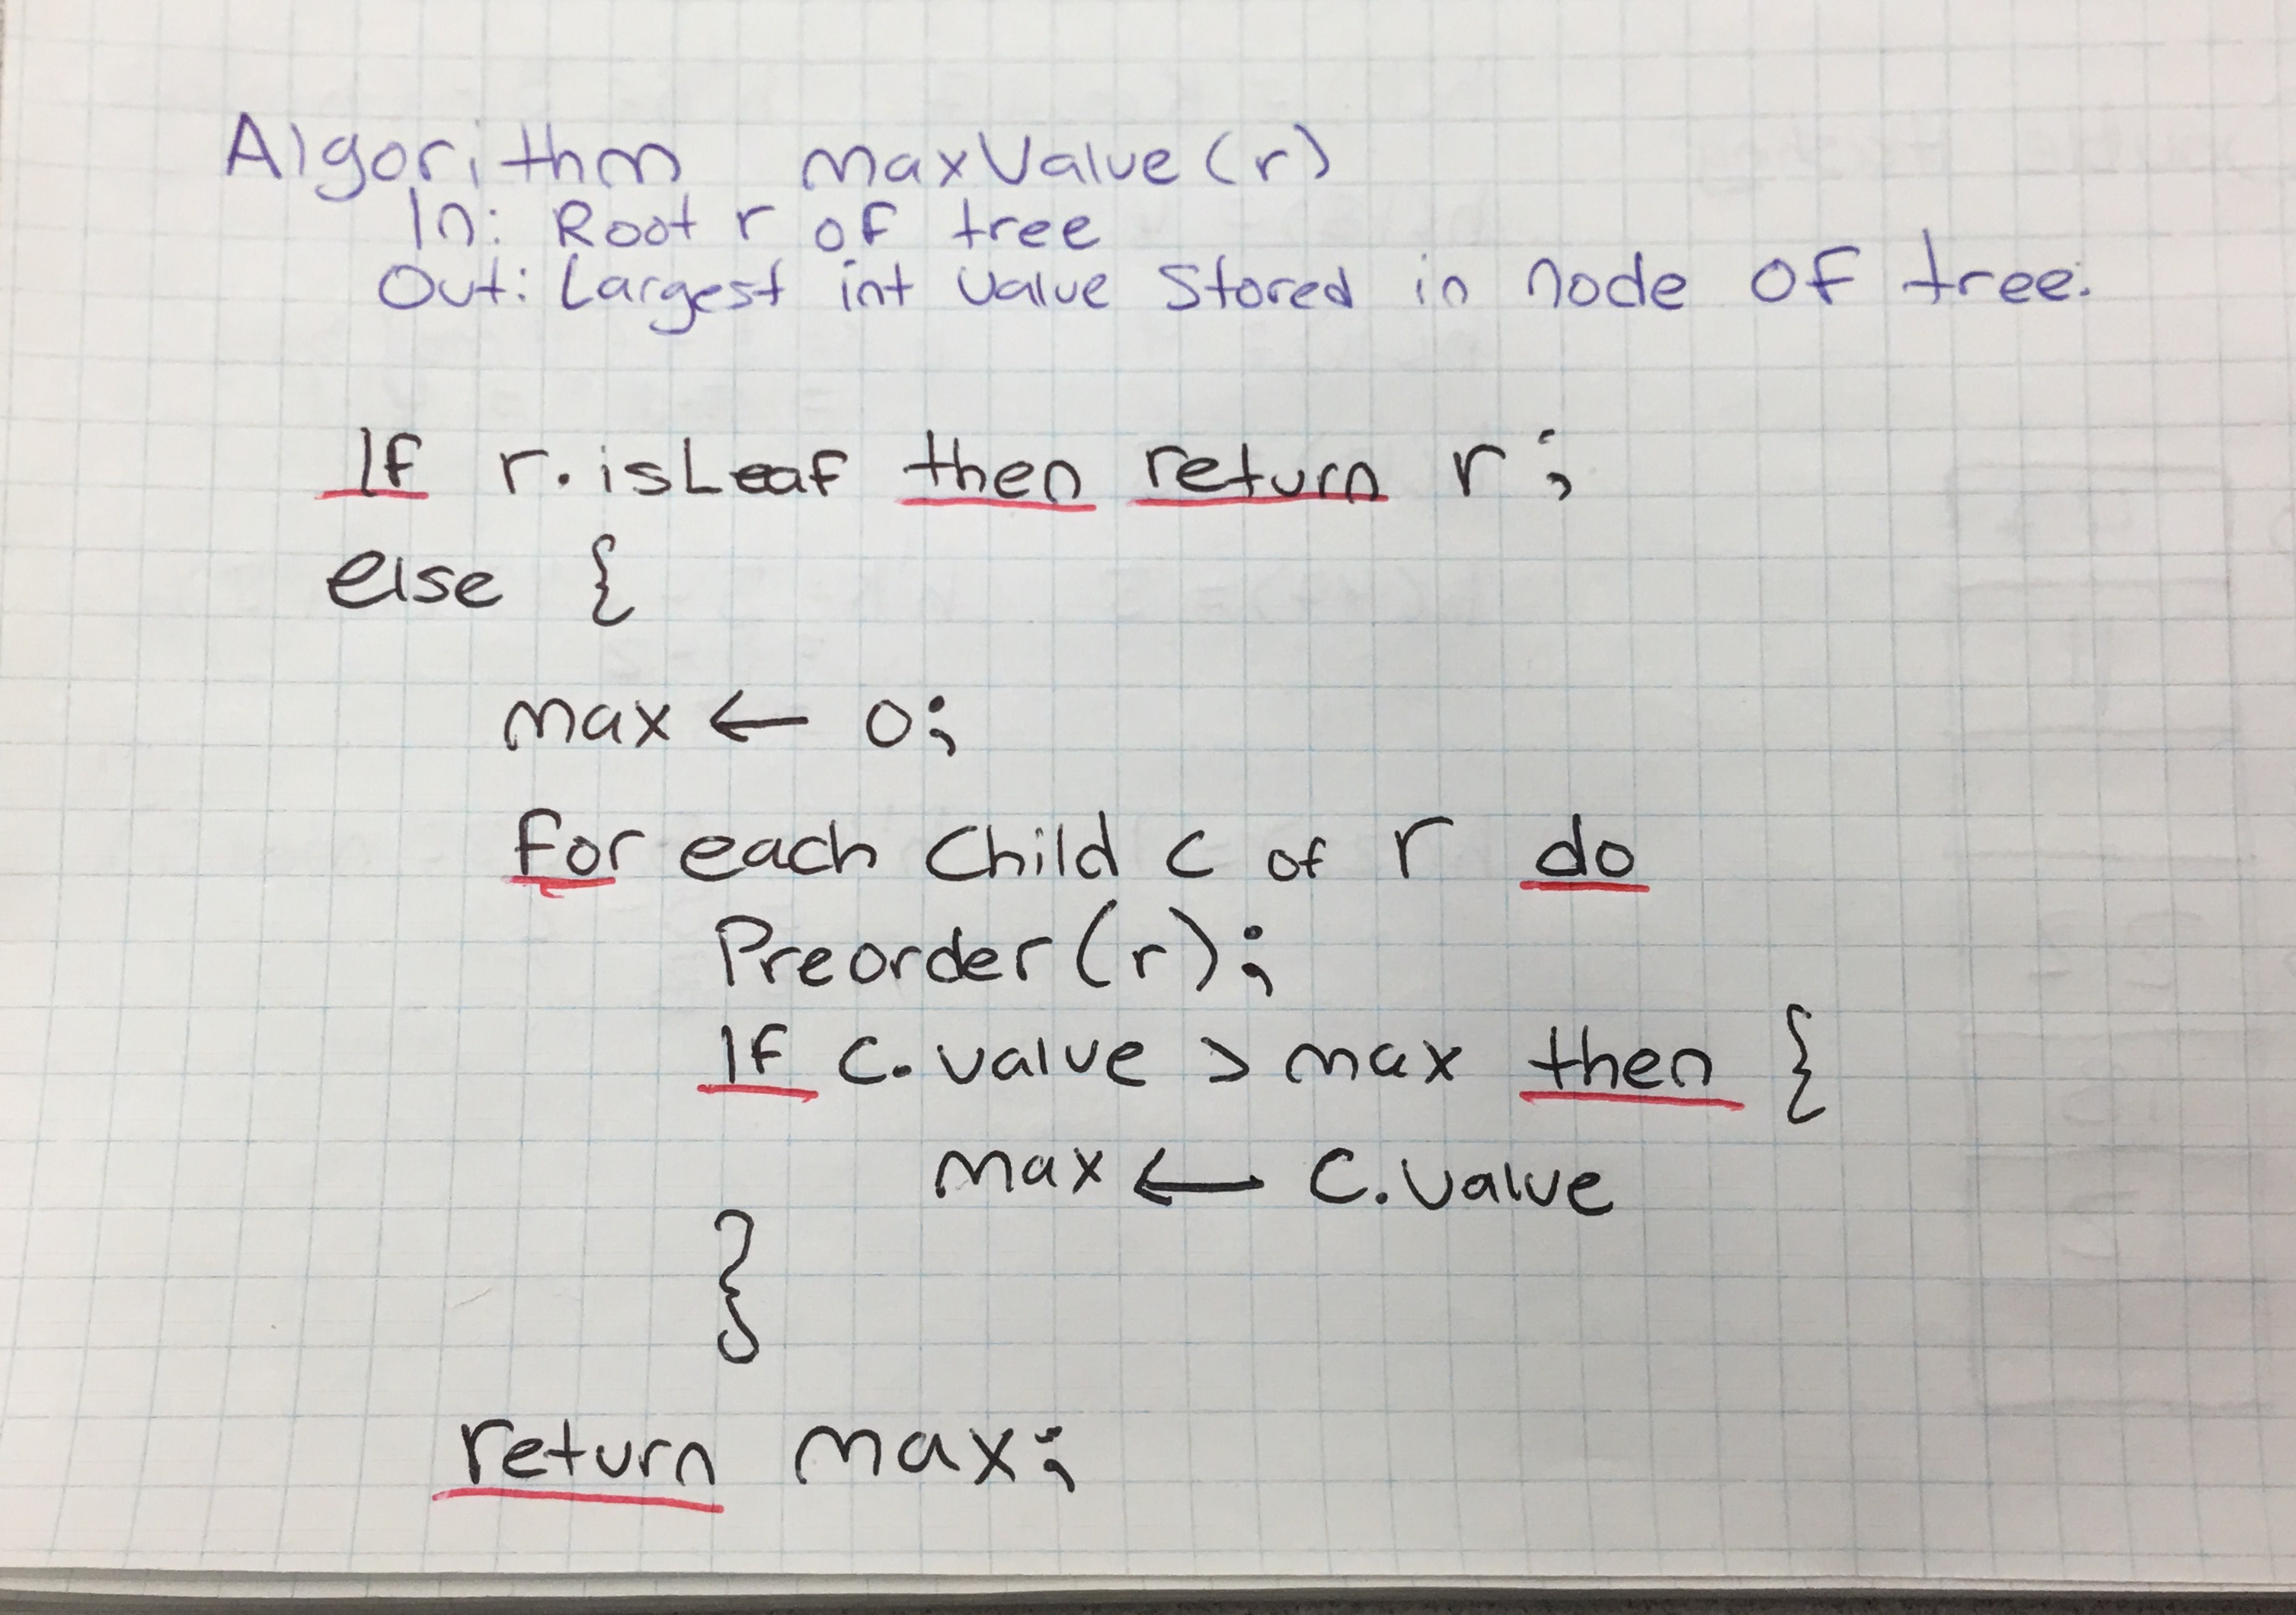 Algorithm maxValue(r)
In: Root r of tree
Out: Largest int value Stored in node of tree.
If r.isLeaf then return r;
else {
max ← 0;
for each Child c of r do
Preorder(r);
If c.value > max then {
max ← c.value
}
return max;